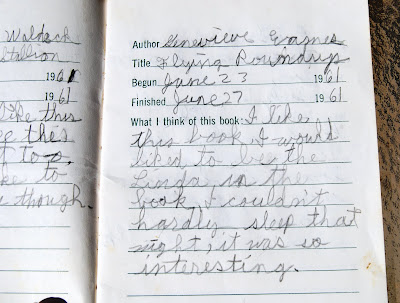 Waldeck
Stallion
1961
1961
like this
ee the's
t to a.
ke to
e though.
Author Genevieve Eames
Title Flying Roundup
Begun June 23 1961
Finished June 27 1961
What I think of this book: I like
this book I would
liked to be the
Linda in the
book I couldn't
hardly sleep that
night, it was so
interesting.